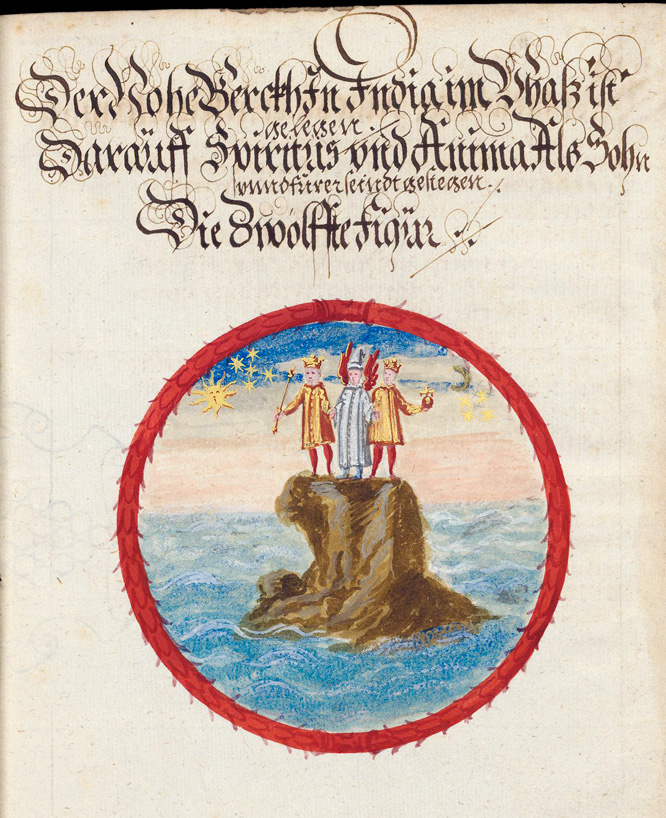 Der Hohe Berckh In Indig im Vhaß ist
gelegen.
Darauff Spiritus vnd Anima Als Sohn
vnnd fürer seindt gestegen.
Die Zwölffte Figur